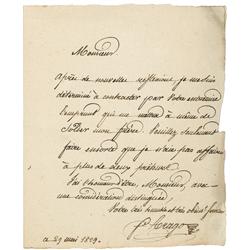 Monsieur
Après de nouvelles réflexions, je me suis
déterminé à contracter par votre entremise
l'emprunt qui me mettra à même de
solder mon frère. Veuillez seulement
faire ensorte que je n'aie pas affaire
à plus de deux prêteurs.
J'ai l'honneur d'être, Monsieur, avec
une considération distinguée,
Votre très humble et très obéist serviteur
ce 29 mai 1829.